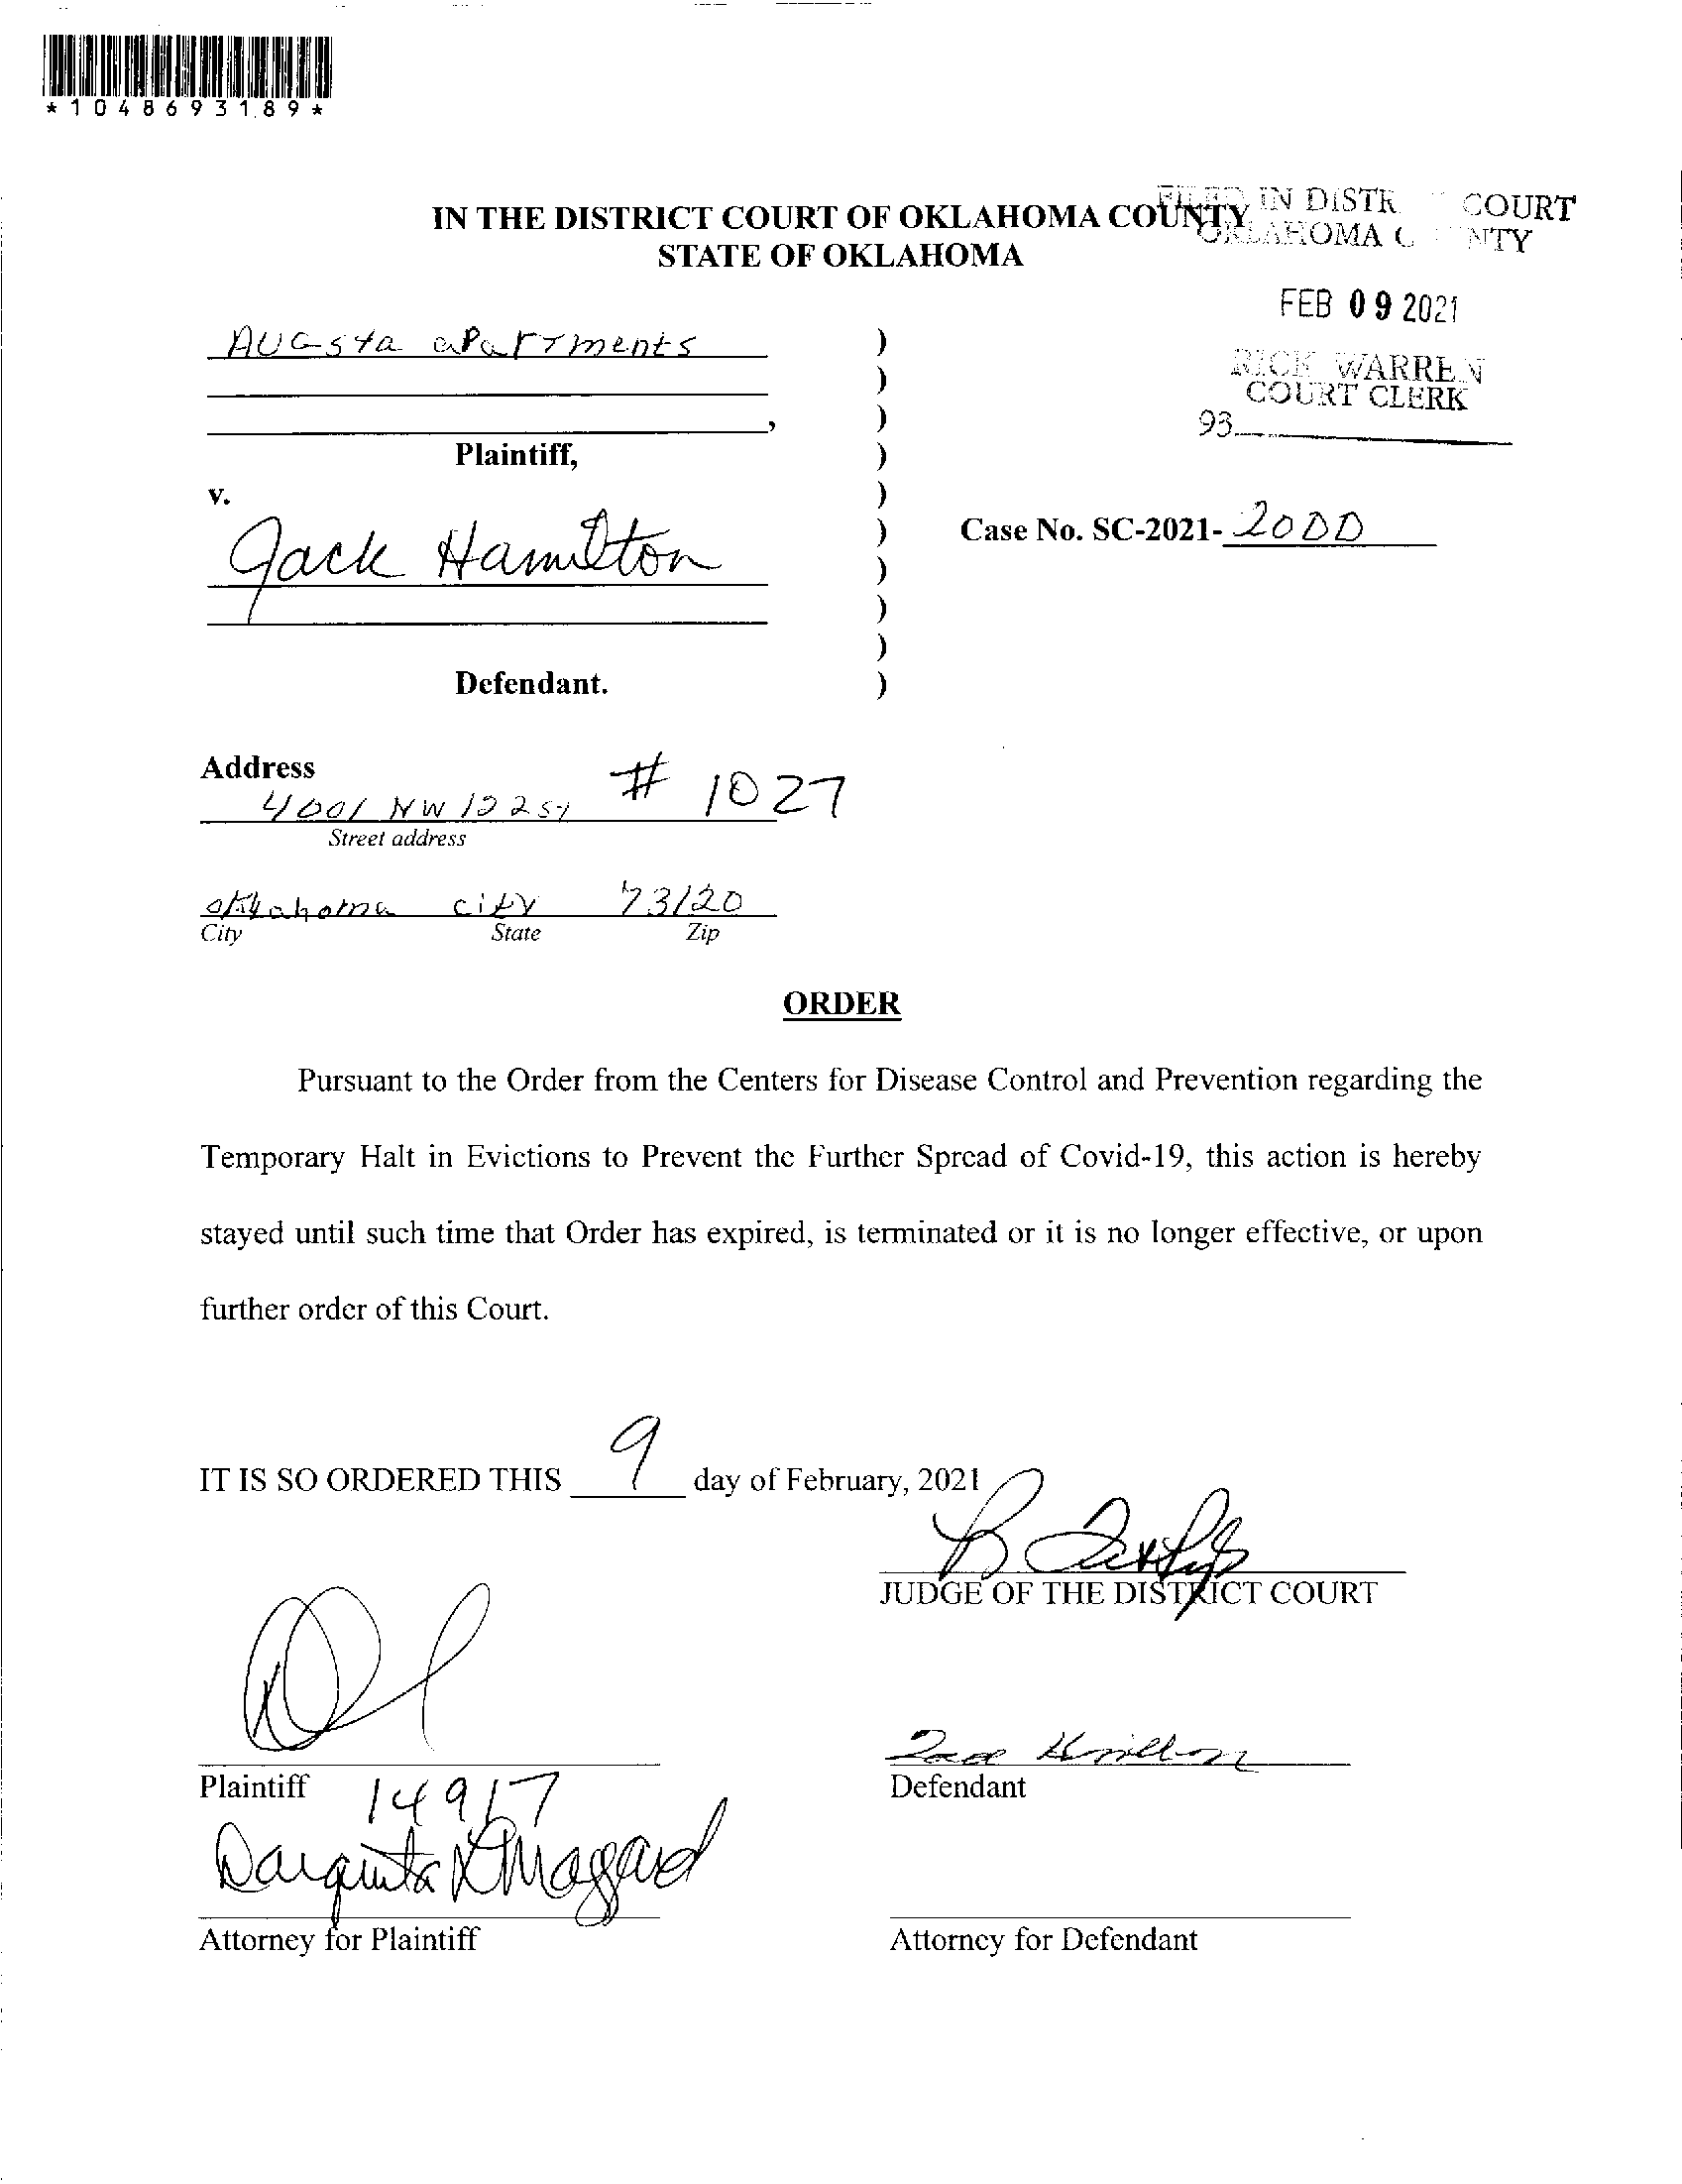 *1048693189*
IN THE DISTRICT COURT OF OKLAHOMA COUNTY
STATE OF OKLAHOMA
FILED IN DISTR COURT
OKLAHOMA C NTY
FEB 09 2021
RICK WARREN
COURT CLERK
93
AUGsta apartments
,
Plaintiff,
v.
Jack Hamilton
Defendant.
)
)
)
)
)
)
)
)
)
)
Case No. SC-2021- 2000
Address
4001 NW 122 st # 1027
Street address
oklahoma city 73120
City State Zip
ORDER
Pursuant to the Order from the Centers for Disease Control and Prevention regarding the
Temporary Halt in Evictions to Prevent the Further Spread of Covid-19, this action is hereby
stayed until such time that Order has expired, is terminated or it is no longer effective, or upon
further order of this Court.
IT IS SO ORDERED THIS 9 day of February, 2021
JUDGE OF THE DISTRICT COURT
Plaintiff
Defendant
14917
Attorney for Plaintiff
Attorney for Defendant